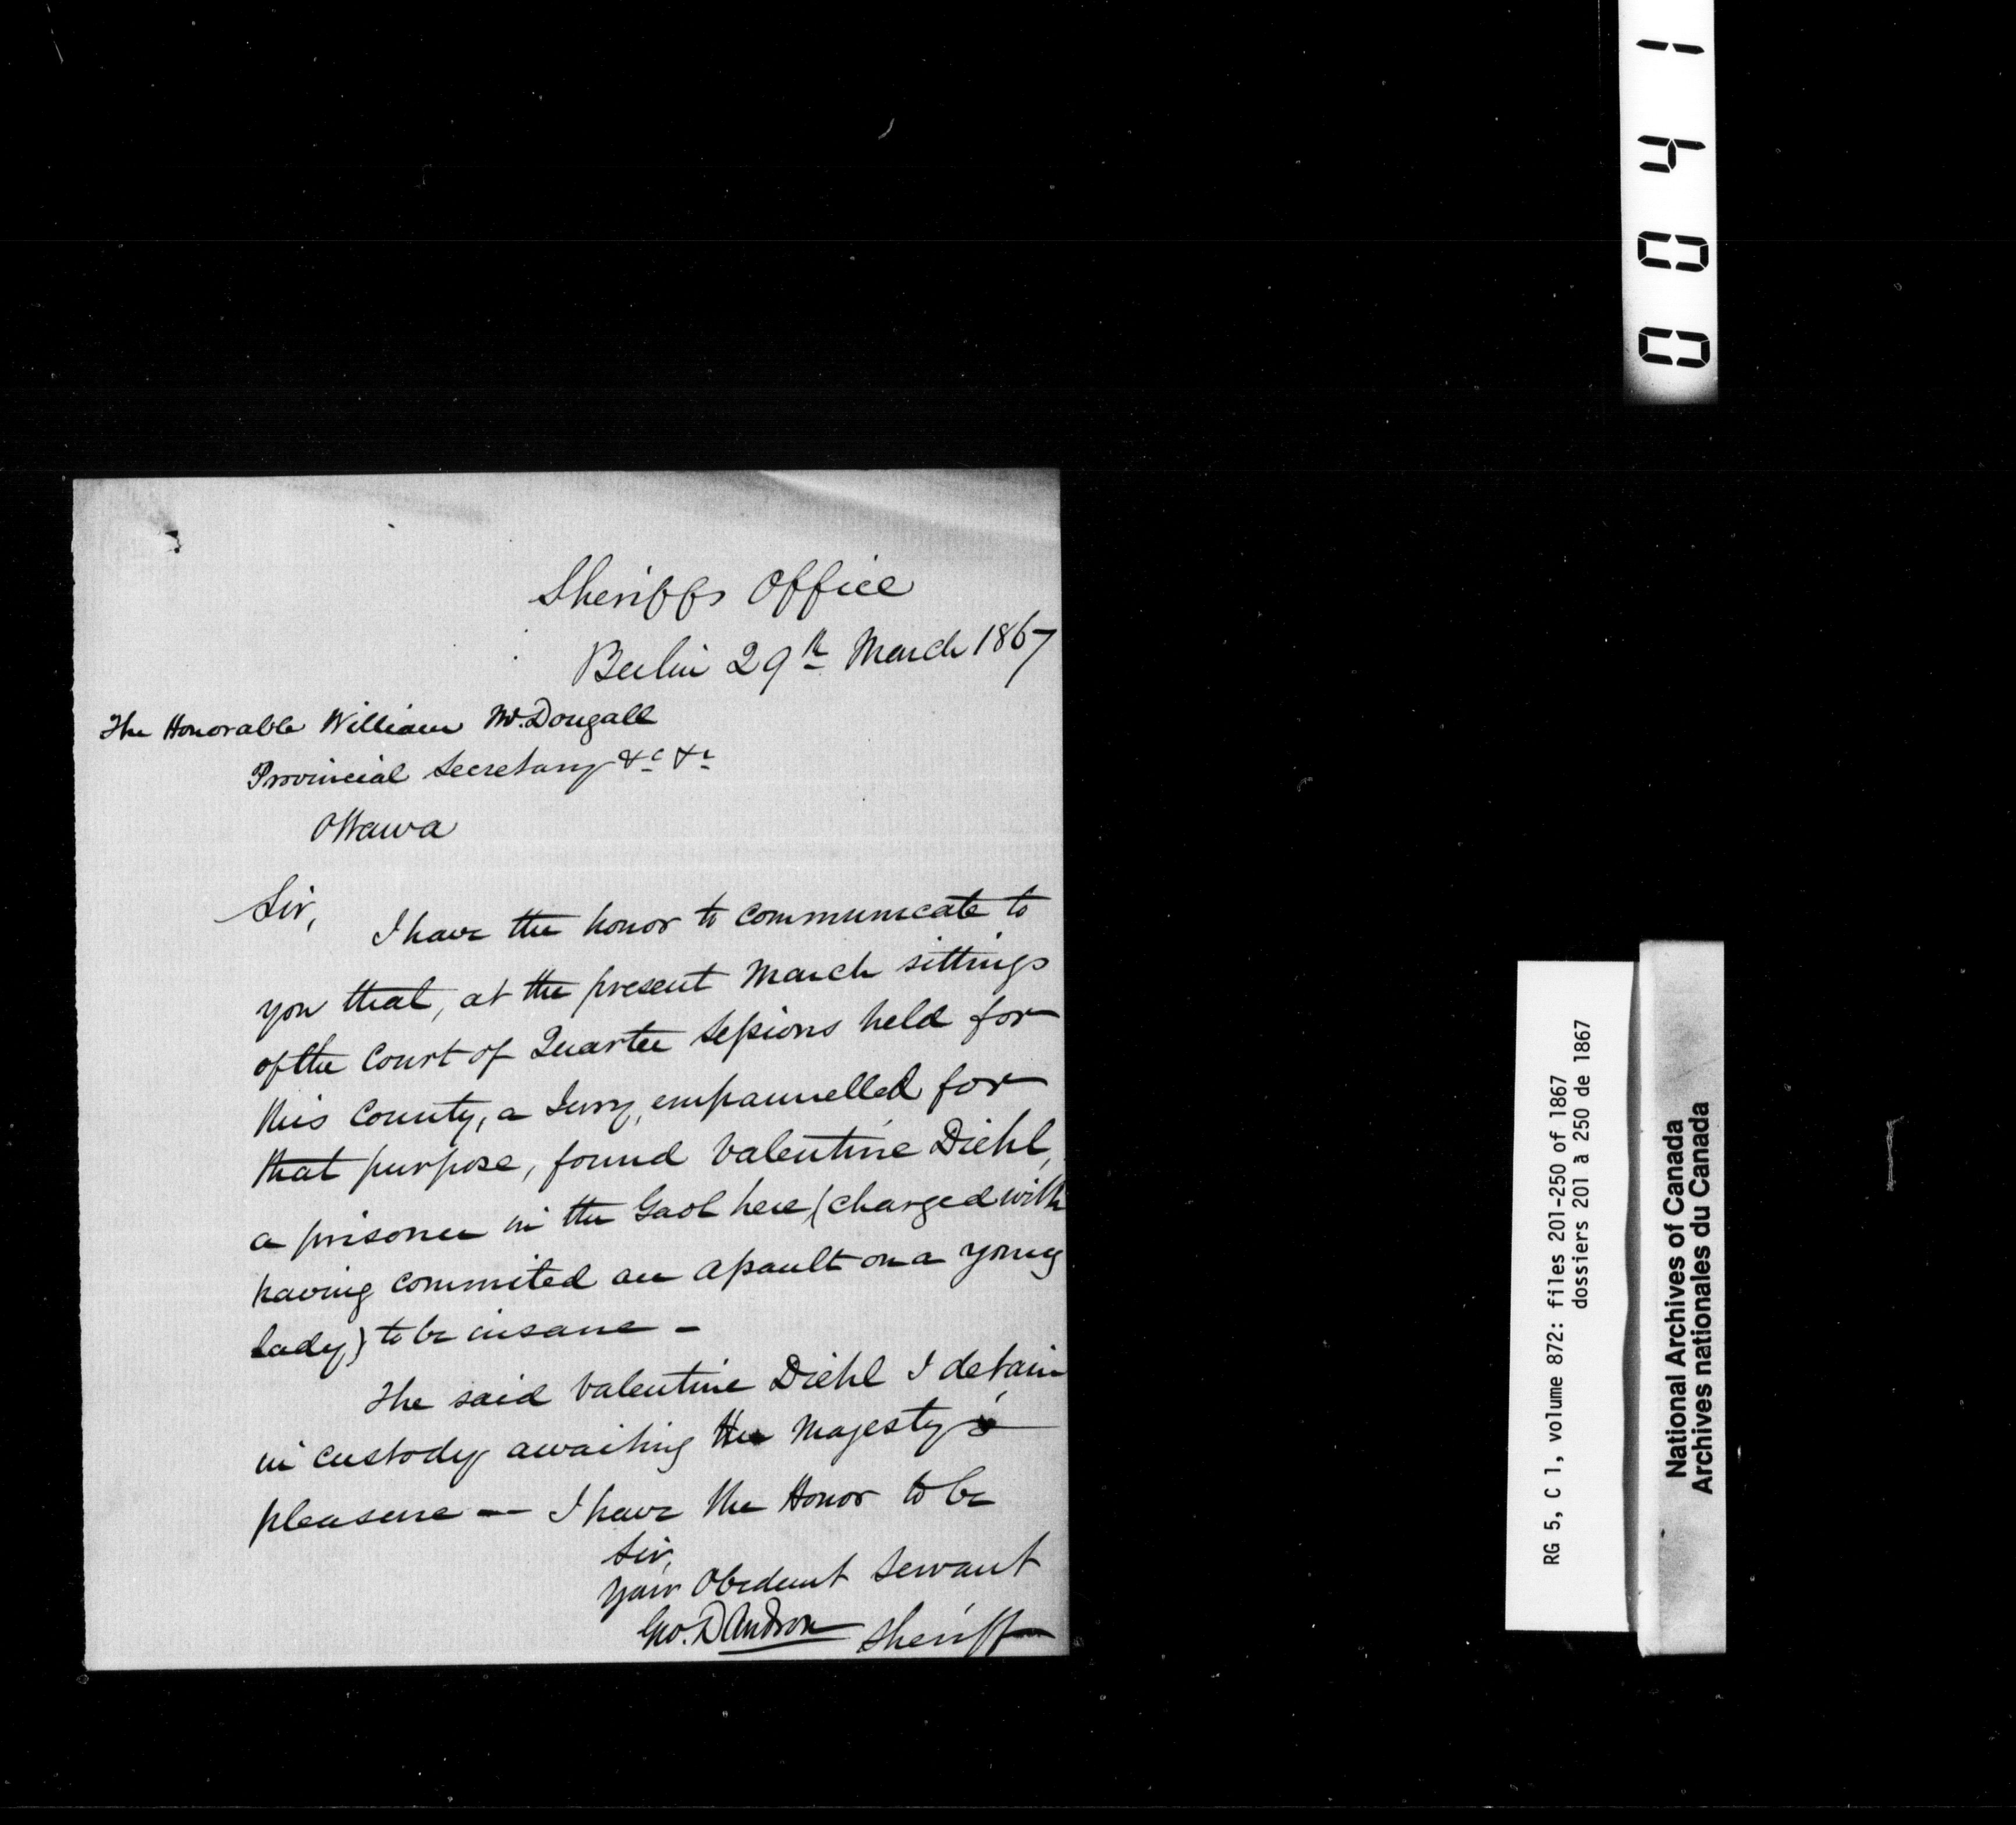 0041
Sheriffs Office
Berlin 29th March 1867
The Honorable William McDougall
Provincial Secretary &c &c
Ottawa
Sir,
I have the honor to communicate to
you that, at the present March sittings
of the Court of Quarter Sessions held for
this County, a Jury, empannelled for
that purpose, found Valentine Diehl,
a prisoner in the Gaol here (charged with
having commited an assault on a young
lady) to be insane -
The said Valentine Diehl I detain
in custody awaiting Her Majesty's
pleasure — I have the Honor to be
Sir,
Your Obedient Servant
Geo. Davidson Sheriff
RG 5, C 1, volume 872: files 201-250 of 1867
dossiers 201 à 250 de 1867
National Archives of Canada
Archives nationales du Canada